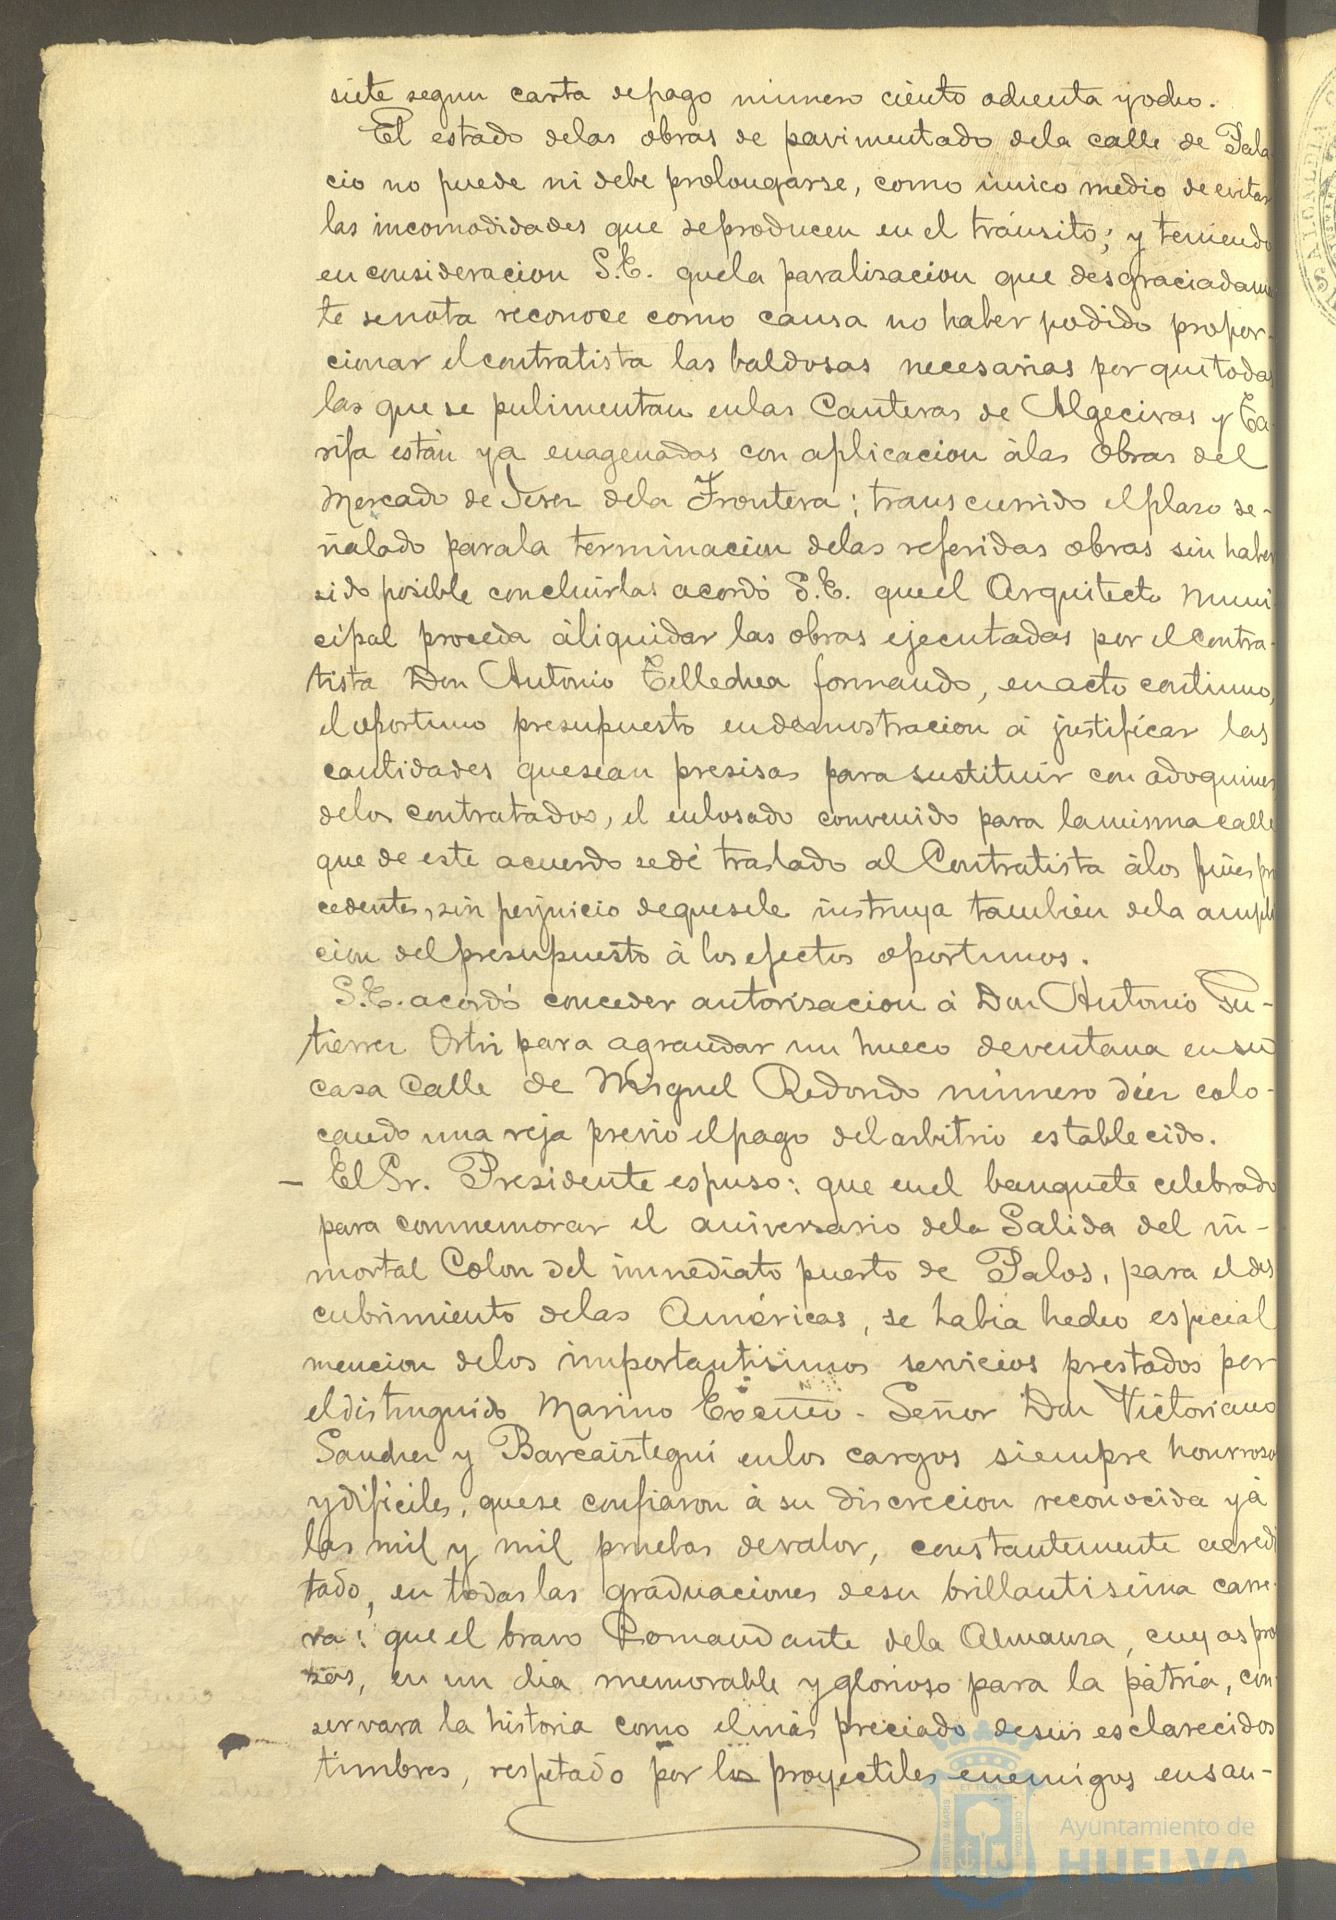 siete segun carta de pago número ciento ochenta y ocho.
El estado de las obras de pavimentado de la calle de Pala
cio no puede ni debe prolongarse, como único medio de evitar
las incomodidades que se producen en el tránsito; y teniendo
en consideracion S.E. que la paralizacion que desgraciadamen
te se nota reconoce como causa no haber podido propor-
cionar el contratista las baldosas necesarias por que todas
las que se pulimentan en las Canteras de Algeciras y Ta-
rifa están ya enagenadas con aplicacion à las Obras del
Mercado de Jerez de la Frontera; transcurrido el plazo se-
ñalado para la terminacion de las referidas obras sin haber
sido posible concluirlas acordó S.E. que el Arquitecto Muni-
cipal proceda à liquidar las obras ejecutadas por el contra-
tista Don Antonio Tellechea formando, en acto continuo,
el oportuno presupuesto en demostracion à justificar las
cantidades que sean presisas para sustituir con adoquines
de los contratados, el enlosado convenido para la misma calle
que de este acuerdo se dé traslado al Contratista à los fines pro
cedentes, sin perjuicio de que se le instruya tambien de la ampli
cion del presupuesto à los efectos oportunos.
S.E. acordó conceder autorizacion à Don Antonio Gu-
tierrez Ortiz para agrandar un hueco de ventana en su
casa Calle de Miguel Redondo número diez colo-
cando una reja previo el pago del arbitrio establecido.
- El Sr. Presidente espuso: que en el banquete celebrado
para conmemorar el aniversario de la Salida del in-
mortal Colon del inmediato puerto de Palos, para el des
cubrimiento de las Américas, se habia hecho especial
mencion de los importantisimos servicios prestados por
el distinguido Marino Excmo. Señor Don Victoriano
Sanchez y Barcaiztegui en los cargos siempre honrosos
y dificiles, que se confiaron à su discrecion reconocida y à
las mil y mil pruebas de valor, constantemente acredi
tado, en todas las graduaciones de su brillantisima carre-
ra: que el bravo Comandante de la Almansa, cuyas proe
zas, en un dia memorable y glorioso para la pátria, con-
servara la historia como el más preciado de sus esclarecidos
timbres, respetado por los proyectiles enemigos en san-
Ayuntamiento de
HUELVA